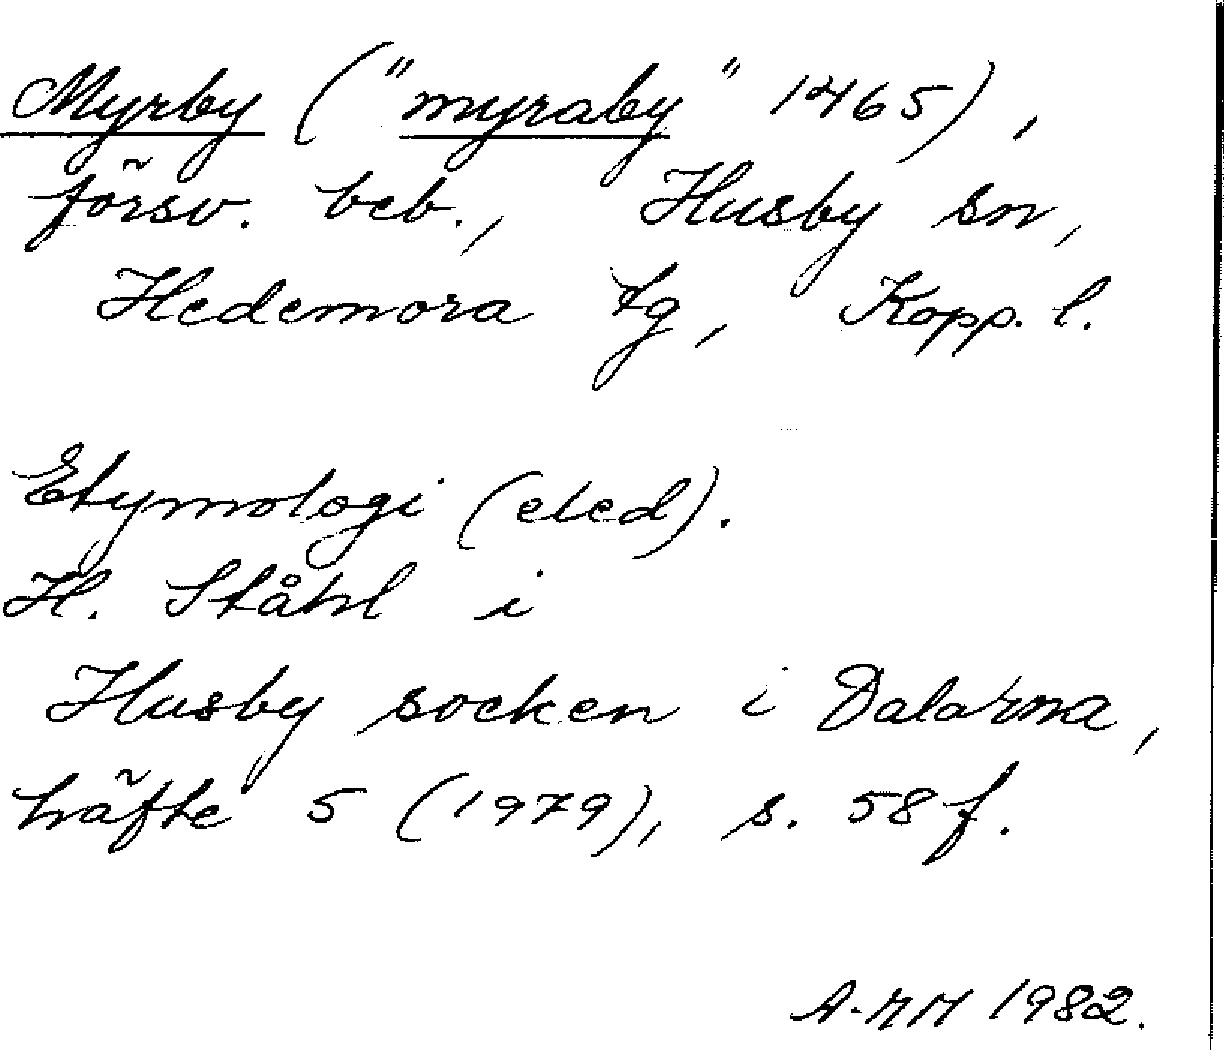 Myrby ("myraby" 1465),
försv. beb., Husby sn,
Hedemora tg, Kopp. l.
Etymologi (eled).
H. Ståhl i
Husby socken i Dalarna,
häfte 5 (1979), s. 58 f.
A-MM 1982.